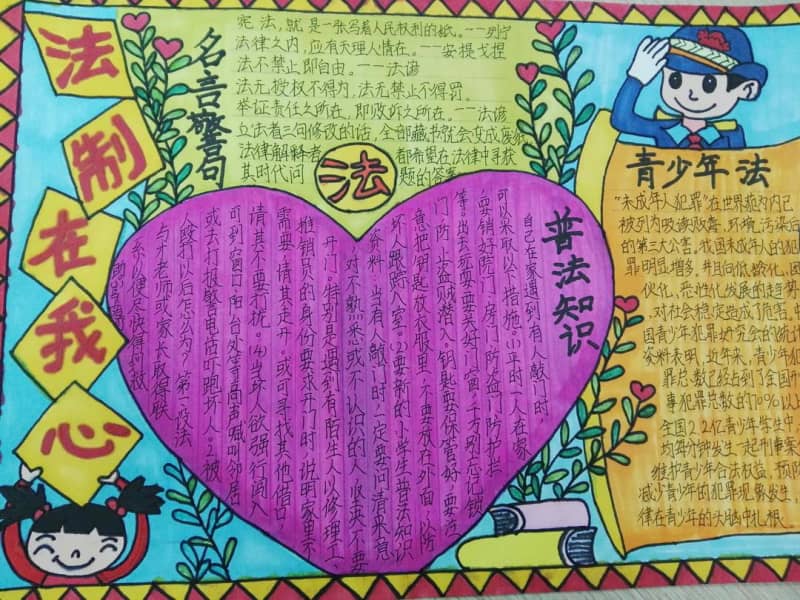 法制在我心
名言警句
宪法，就是一张写着人民权利的纸。——列宁
法律之内，应有天理人情在。——安提戈捏
法不禁止即自由。——法谚
法无授权不得为，法无禁止不得罚。
举证责任之所在，即败诉之所在。——法谚
立法者三句修改的话，全部藏书就会变成废纸
法律解释者 都希望在法律中寻获
其时代问 题的答案
法
普法知识
自己在家遇到有人敲门时，
可以采取以下措施：(1)平时一人在家
要锁好院门、房门、防盗门、防护栏
等。出去玩要关好门窗，千万别忘记锁
门，防止盗贼潜入。钥匙要保管好，要注
意把钥匙放衣服里，不要放在外面，以防
坏人跟踪入室。(2)要新的小学生普法知识
资料，当有人敲门时一定要问清来意，
对不熟悉或不认识的人，坚决不要
开门；特别是遇到有陌生人以修理工、
推销员的身份要求开门时，说明家里不
需要，请其走开。或可寻找其他借口
请其不要打扰。(4)当坏人欲强行闯入
可到窗口、阳台处等高声喊叫邻居
或去打报警电话吓跑坏人。2、被
人殴打以后怎么办？第一，应该
与老师或家长取得联
系以便尽快得到救
助
青少年法
“未成年人犯罪”在世界范围内已
被列为吸读贩毒、环境污染后
的第三大公害。我国未成年人的犯
罪明显增多，并且向低龄化，团
伙化，恶性化发展的趋势
对社会稳定造成了损害。中
国青少年犯罪研究会的统计
资料表明，近年来，青少年犯
罪总数已经占到了全国刑
事犯罪总数的70%以上
全国2.2亿青少年学生中
均每分钟发生一起刑事案
维护青少年合法权益，预防
减少青少年的犯罪现象发生，
律在青少年的头脑中扎根。